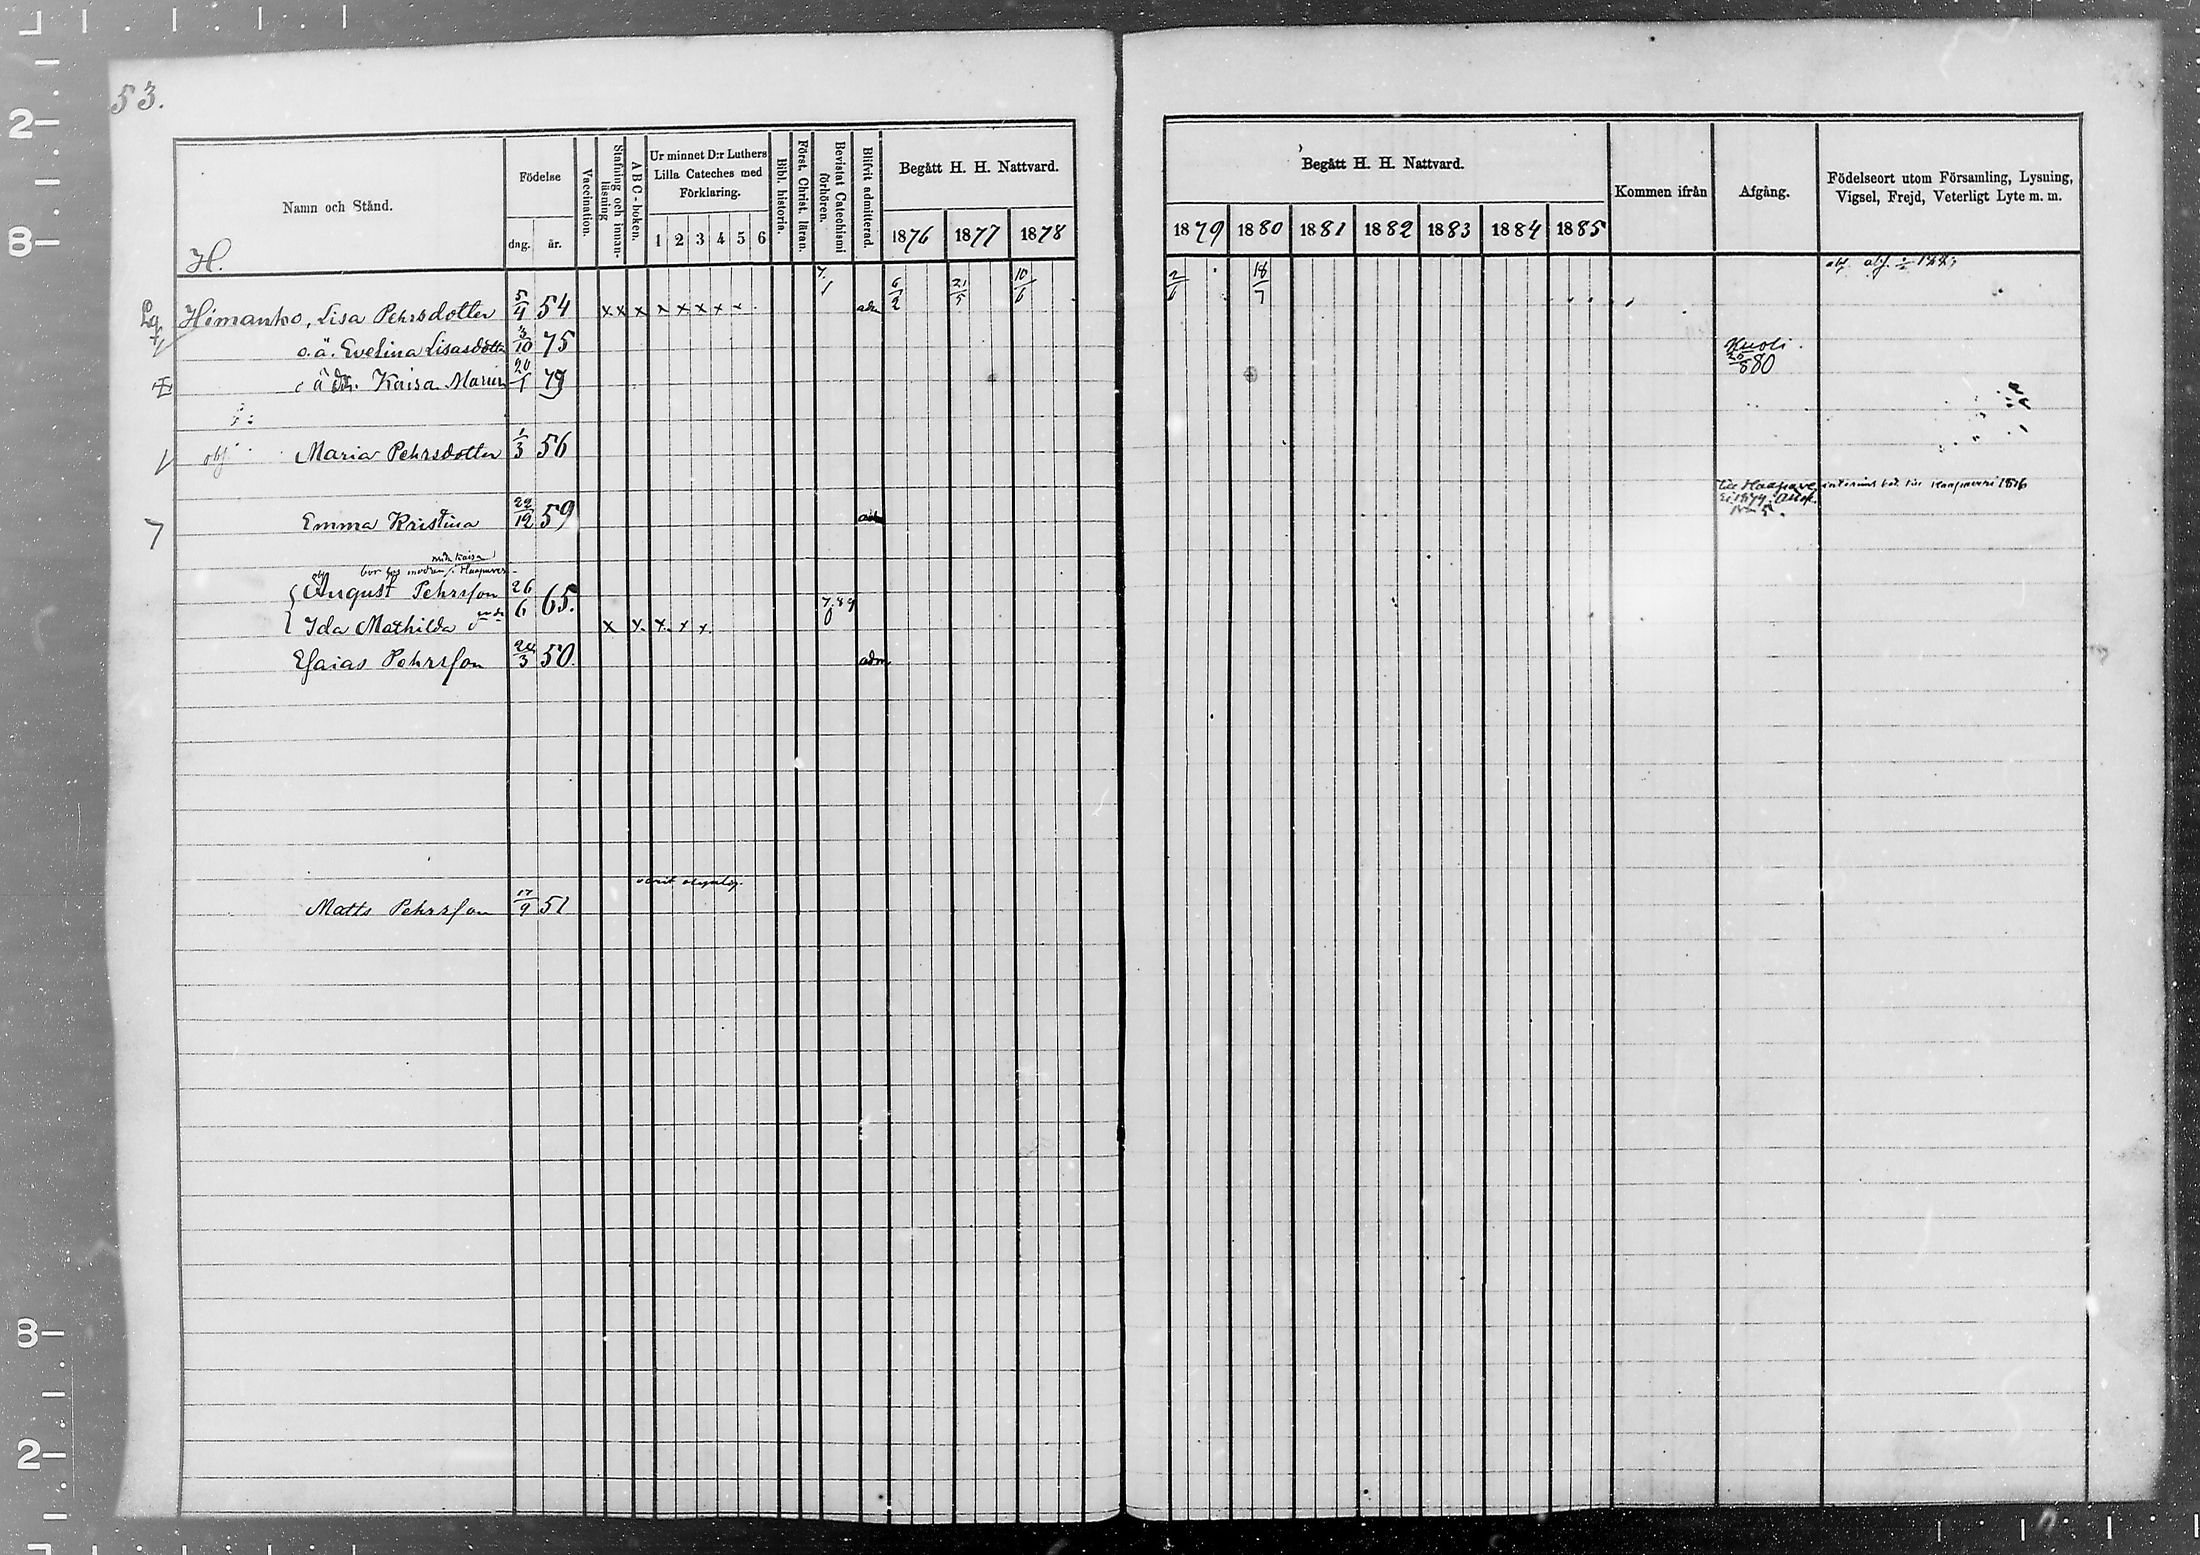 53.
Namn och Stånd.
H.
Födelse
dag.
år.
Vaccination.
Stafning och innan-
läsning
ABC-boken.
Ur minnet D:r Luthers
Lilla Cateches med
Förklaring.
1 2 3 4 5 6
Bibl. historia.
Först. Christ. läran.
Bevistat Catechismi
förhören.
Blifvit admitterad.
Begått H. H. Nattvard.
1876 1877 1878
Begått H. H. Nattvard.
1879 1880 1881 1882 1883 1884 1885
Kommen ifrån
Afgång.
Födelseort utom Församling, Lysning,
Vigsel, Frejd, Veterligt Lyte m. m.
Himanko, Lisa Pehrsdotter 5/4 54 x x x x x x x x adm 6/2 21/5 10/6 18/7
o.ä. Evelina Lisasdottr 3/10 75
Kuoli
o ä dtr. Kaisa Maria 20/1 79 80
obj Maria Pehrsdotter 1/3 56
Emma Kristina 22/12 59 adm
bor hos modren
August Pehrsson 26/6 65.
Ida Mathilda x x. x. x x. 7.89
Esaias Pehrsson 24/3 50. adm
Matts Pehrsson 17/9 51